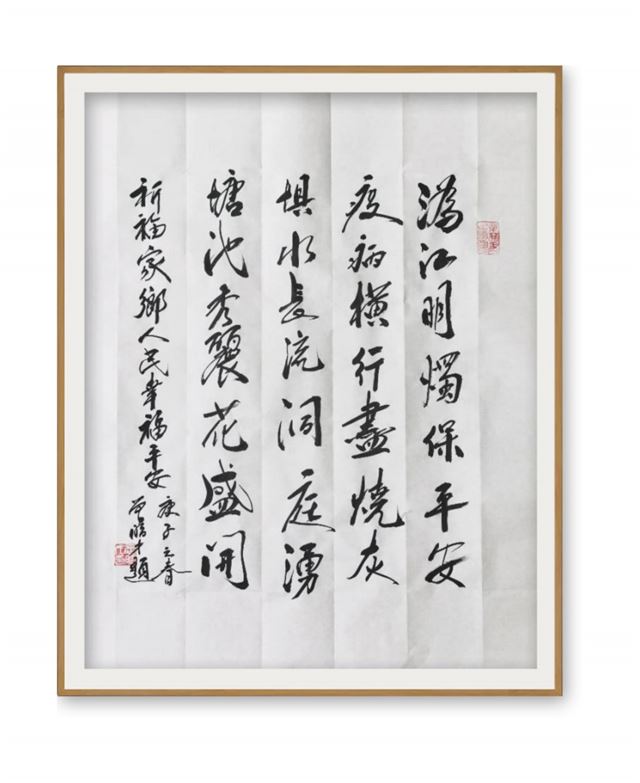 滿江明燭保平安
疫病横行盡燒灰
惧水長流洞庭湧
塘池秀麗花盛開
祈福家鄉人民幸福平安
庚子之春
才題